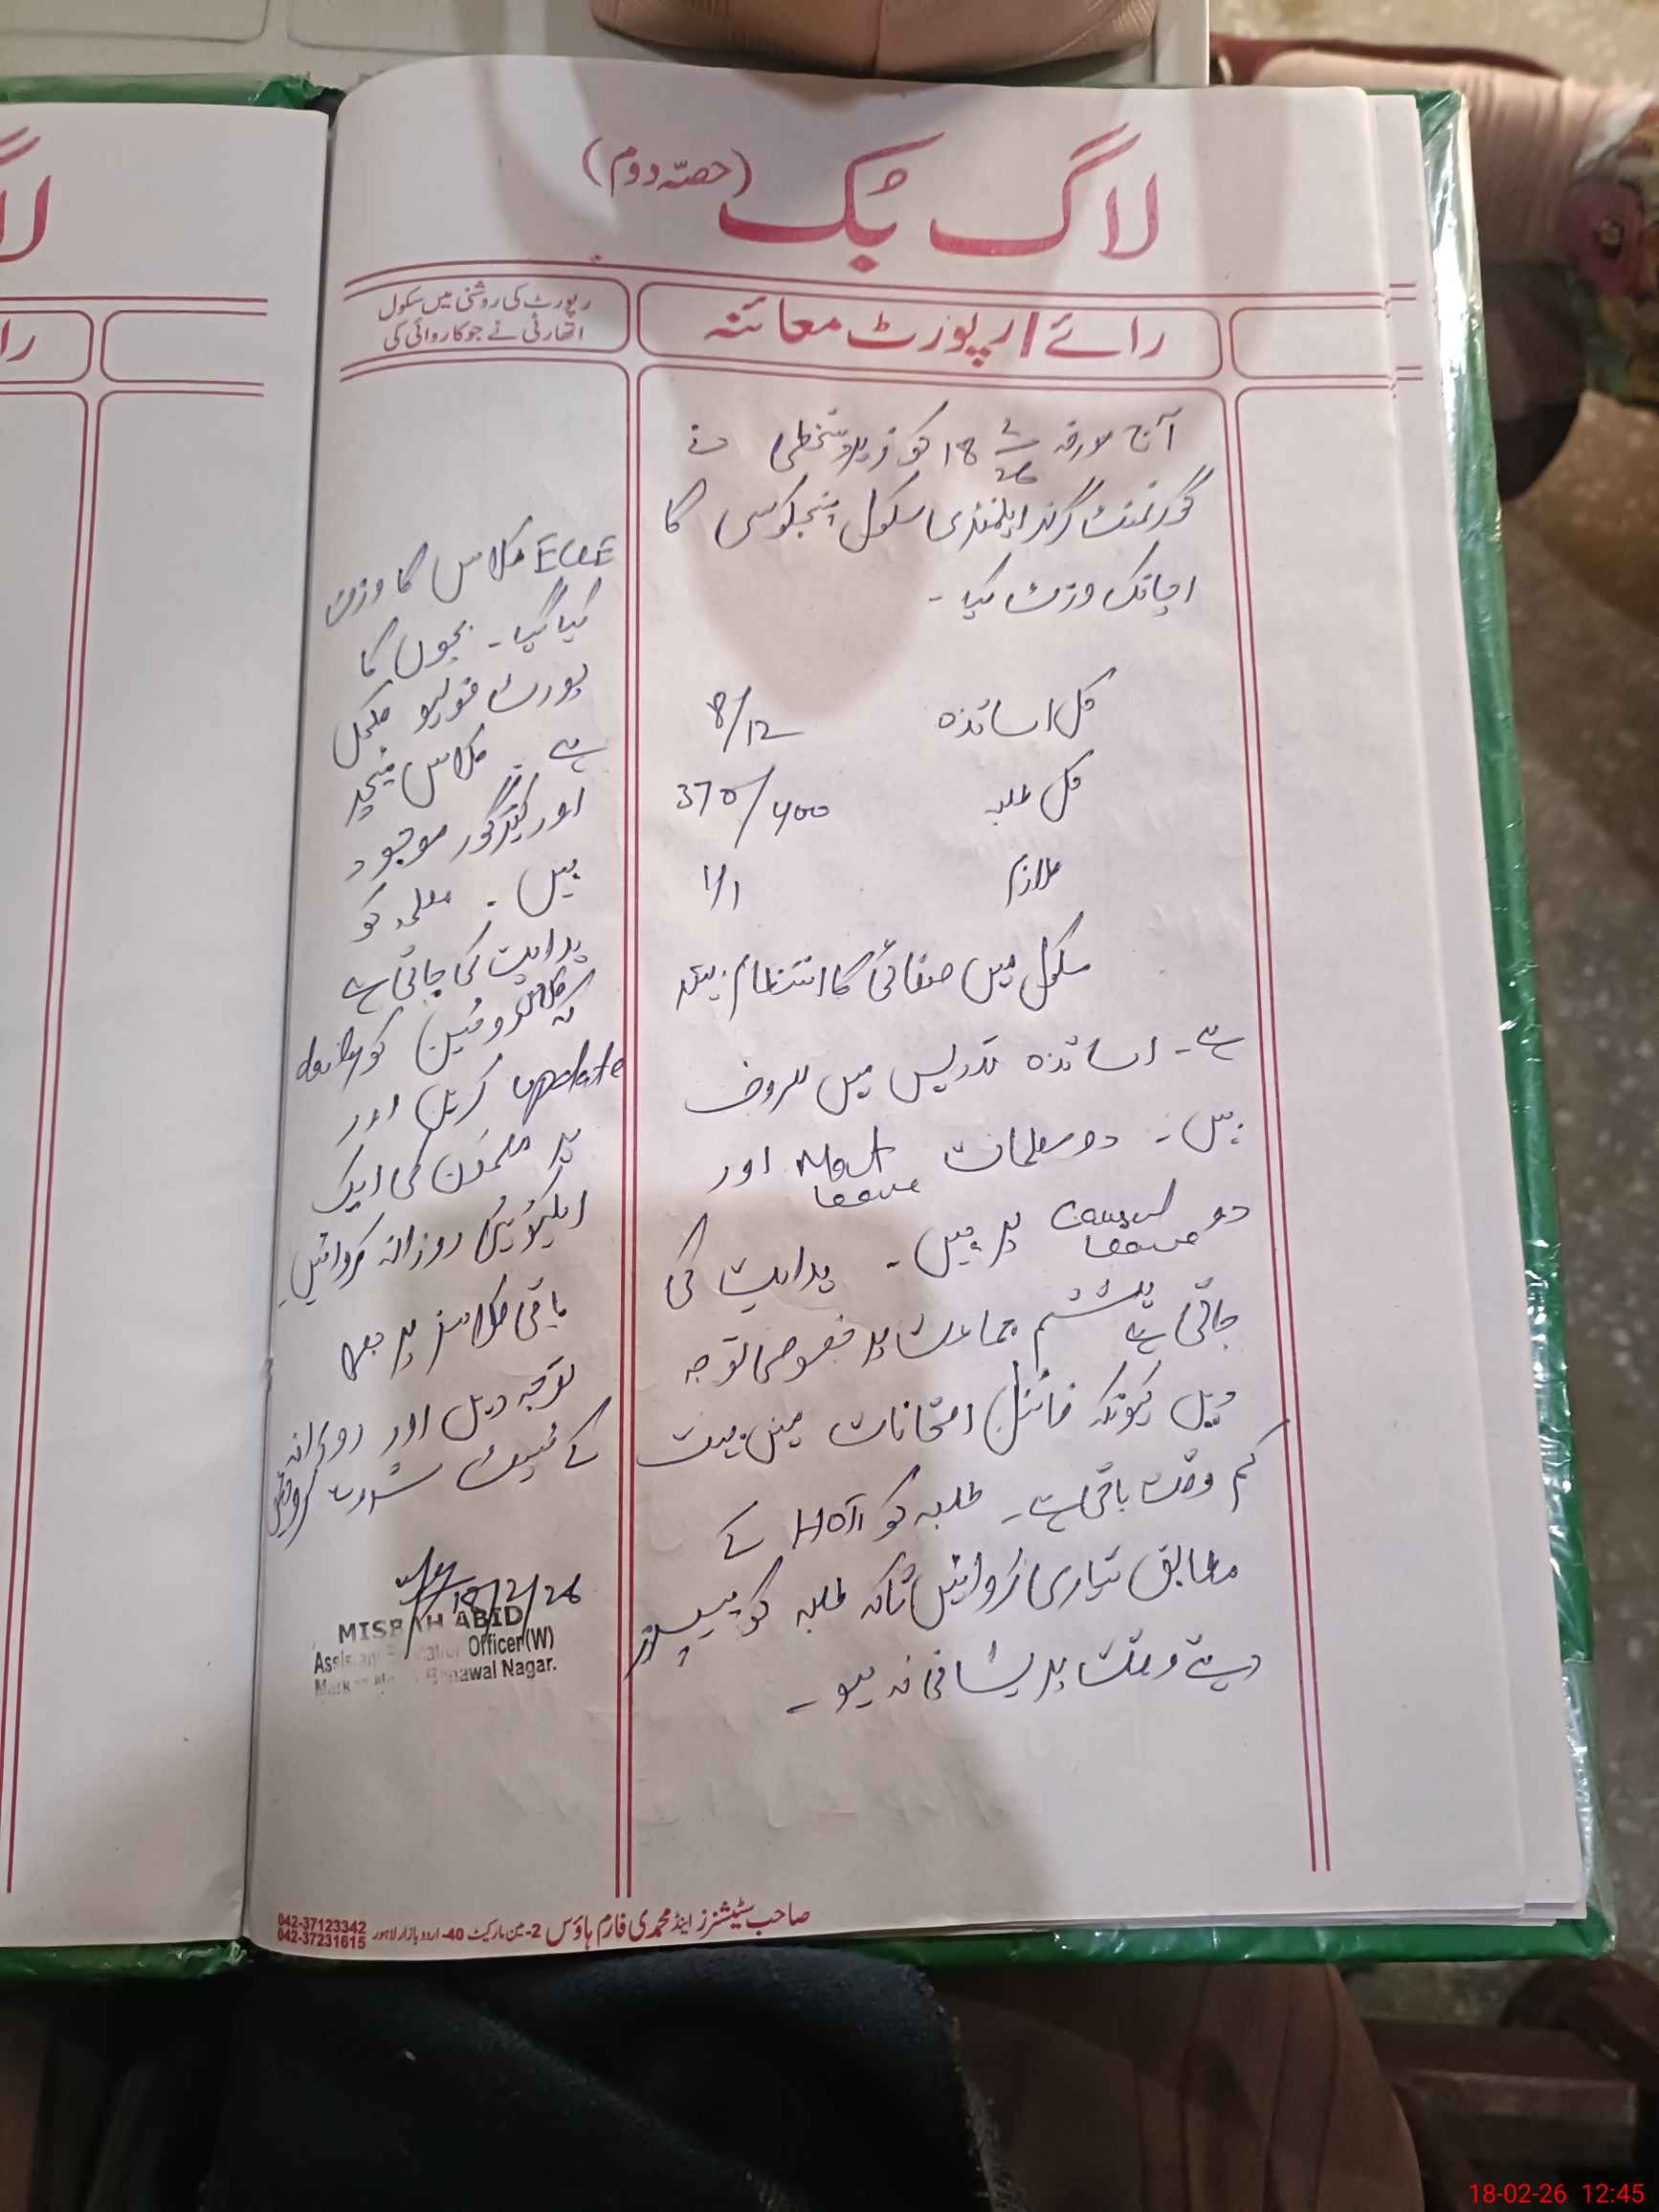 لاگ بُک (حصّہ دوم)
رائے / رپورٹ معائنہ
رپورٹ کی روشنی میں سکول
اتھارٹی نے جو کاروائی کی
آج مورخہ 18 2 26 کو زیر دستخطی نے
گورنمنٹ گرلز ایلمنٹری سکول کا
اچانک وزٹ کیا ۔
کل اساتذہ 8/12
کل طلبہ 370/400
ملازم 1/1
سکول میں صفائی کا انتظام بہتر
ہے ۔ اساتذہ تدریس میں مصروف
ہیں ۔ دو معلمات leave اور
دو Causul leave پر ہیں ۔ ہدایت کی
جاتی ہے ہشتم جماعت پر خصوصی توجہ
دیں کیونکہ فائنل امتحانات میں بہت
کم وقت باقی ہے ۔ طلبہ کو کے
مطابق تیاری کروائیں تاکہ طلبہ کو پیپرز
دیتے وقت پریشانی نہ ہو ۔
ECCE کلاس کا وزٹ
کیا گیا ۔ بچوں کا
پورٹ فولیو مکمل
ہے ۔ کلاس ٹیچر
اور کیئرگور موجود
ہیں ۔ معلمہ کو
ہدایت کی جاتی ہے
کہ کلاس روٹین کو daily
update کریں اور
ہر مضمون کی ایک
ایکٹیویٹی روزانہ کروائیں
باقی کلاسز پر بھی
توجہ دیں اور روزانہ
کے ٹیسٹ کروائیں
18/2/26
MISBAH ABID
Assistant Education Officer (W)
Nagar.
صاحب سٹیشنرز اینڈ محمدی فارم ہاؤس 2- مین مارکیٹ 40- اردو بازار لاہور 042-37123342
042-37231615
18-02-26 12:45